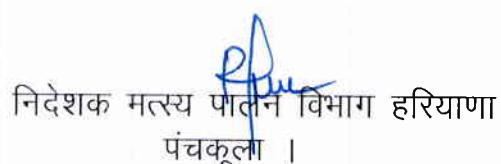 निदेशक मत्स्य पालन विभाग हरियाणा
पंचकूला ।